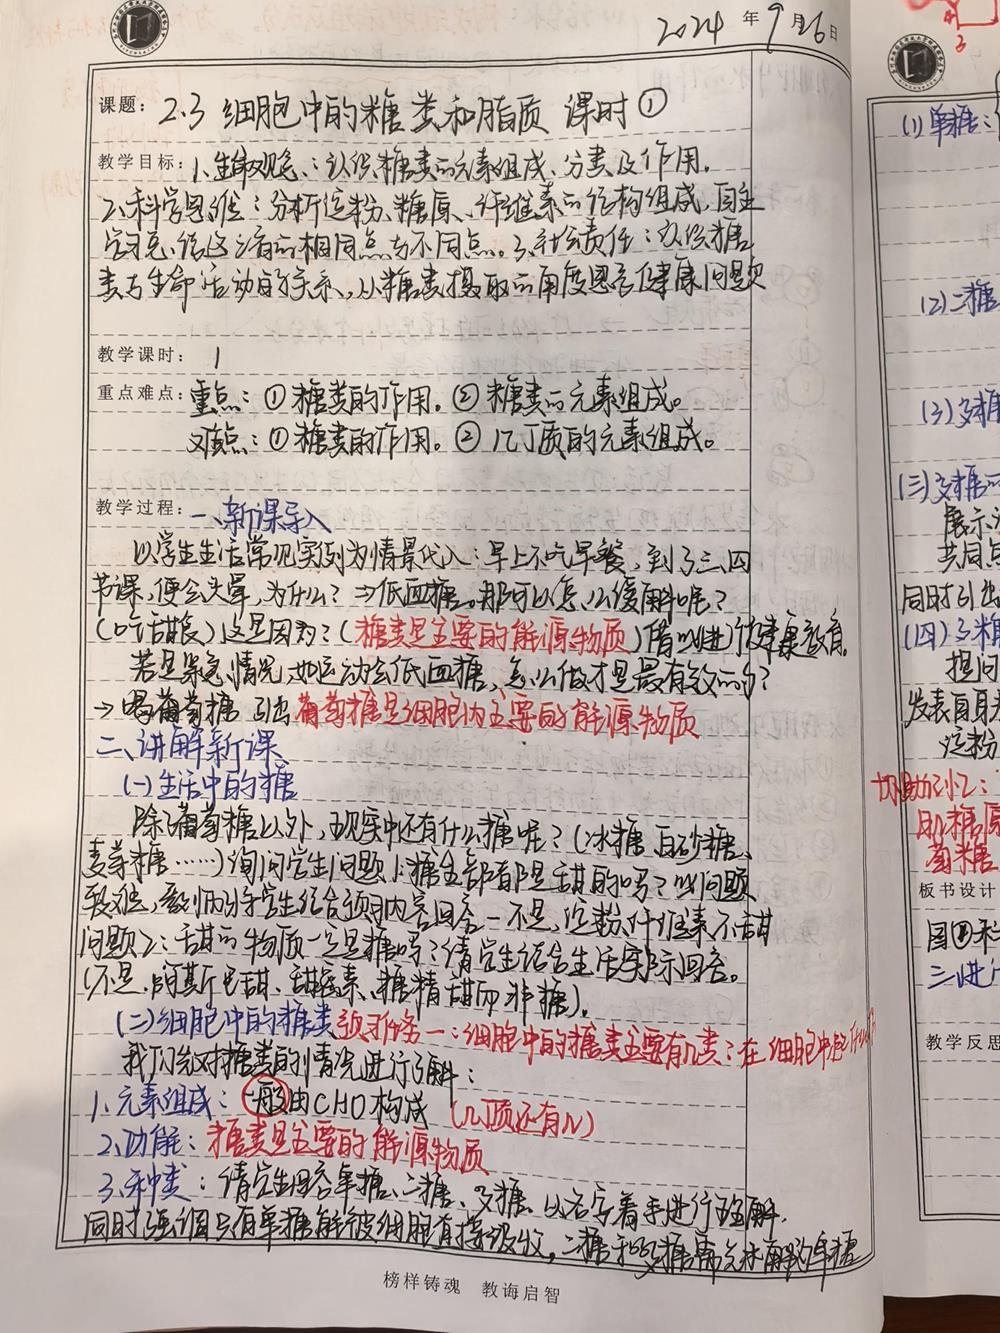 2024 年 9 月 26 日
课题: 2.3 细胞中的糖类和脂质 课时①
教学目标: 1.生命观念:认识糖类的元素组成、分类及作用.
2.科学思维:分析淀粉、糖原、纤维素的结构组成,自主
学习总结这三者的相同点与不同点。3.社会责任:认识糖
类与生命活动的关系,从糖类摄取的角度思考健康问题
教学课时: 1
重点难点: 重点:①糖类的作用.②糖类的元素组成。
难点:①糖类的作用.②几丁质的元素组成。
教学过程: 一、新课导入
以学生生活常见实例为情景代入:早上不吃早餐,到了三、四
节课,便会头晕,为什么?⇒低血糖。那可以怎么缓解呢?
(吃甜食)这是因为?(糖类是主要的能源物质)借此进行健康教育.
若是紧急情况,如运动会低血糖,怎么做才是最有效的?
→喝葡萄糖 引出葡萄糖是细胞内主要的能源物质
二、讲解新课
(一)生活中的糖
除了葡萄糖以外,现实中还有什么糖呢?(冰糖、白砂糖、
麦芽糖……)询问学生问题1:糖全部都是甜的吗?此问题
较难,教师引导学生结合预习内容回答—不是,淀粉、纤维素不甜
问题2:甜的物质一定是糖吗?请学生结合生活实际回答。
(不是,阿斯巴甜、甜蜜素、糖精甜而非糖).
(二)细胞中的糖类 预习任务一:细胞中的糖类主要有几类?在细胞中起
我们先对糖类的情况进行了解:
1.元素组成:一般由CHO构成(几丁质还有N)
2.功能:糖类是主要的能源物质
3.种类:请学生回答单糖、二糖、多糖.以名字着手进行理解.
同时强调只有单糖能被细胞直接吸收,二糖和多糖需先水解为单糖
榜样铸魂 教诲启智
(1)单糖:
(2)二糖
(3)多糖
(三)多糖的
展示
共同点
同时引出
(四)多糖
提问
发表自身
淀粉
协助记忆:
肌糖原
葡糖
板书设计
三、进行
教学反思